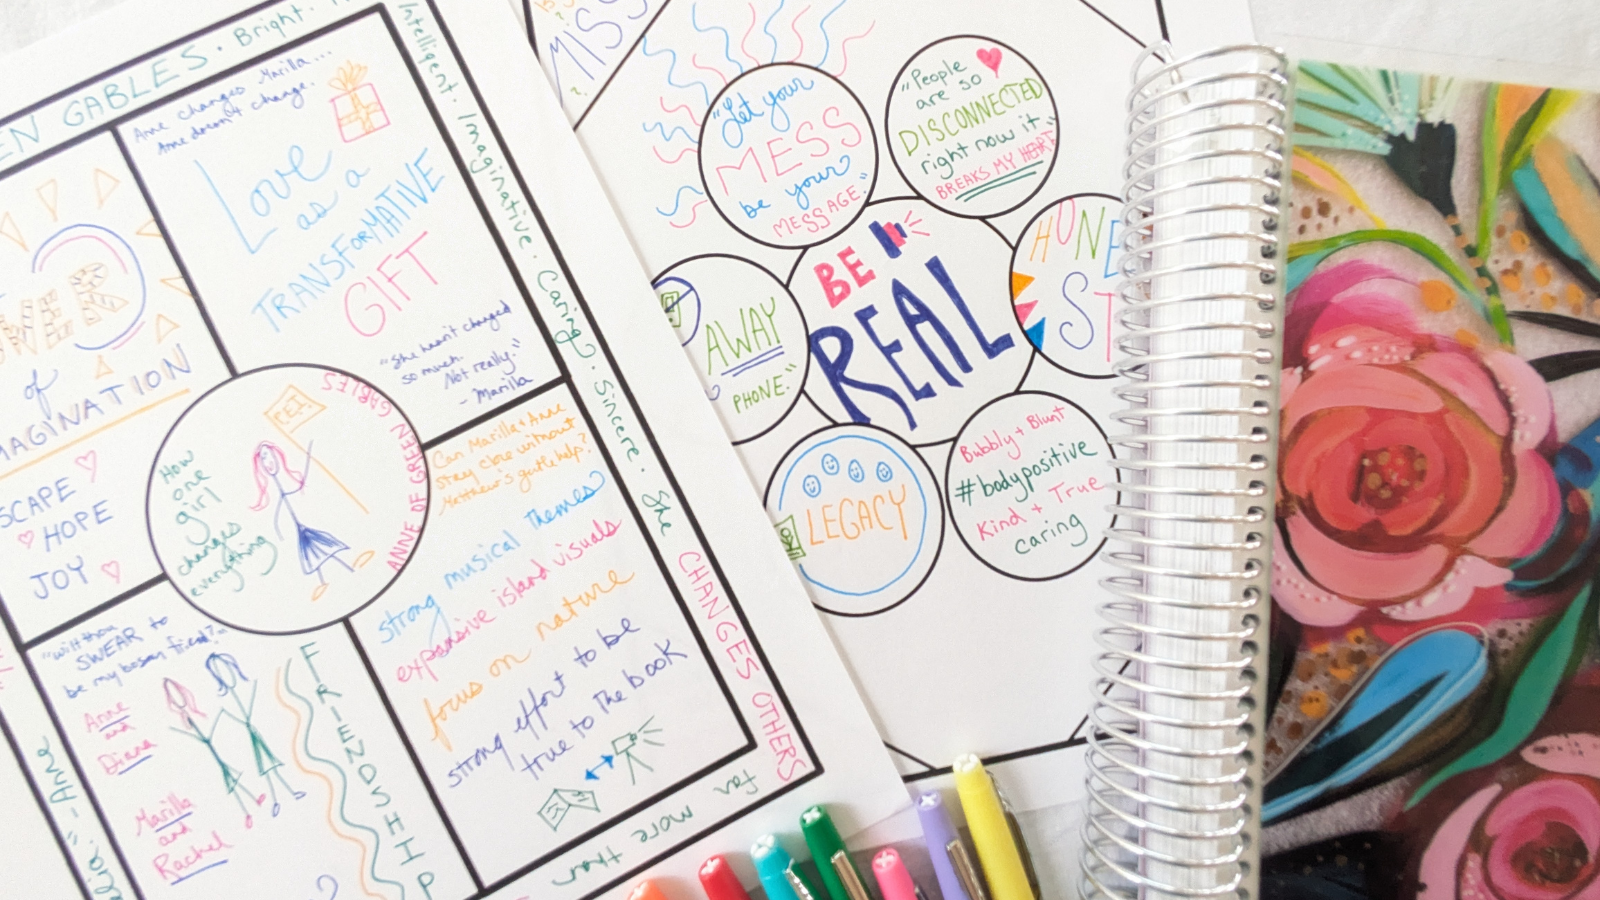 EN GABLES. Bright.
Intelligent. Imaginative. Caring. Sincere. She
CHANGES OTHERS
far more than
Anne changes Marilla...
Anne doesn't change.
Love
as a
TRANSFORMATIVE
GIFT
"She hasn't changed
so much.
Not really."
- Marilla
of
MAGINATION
SCAPE
HOPE
JOY
How
one
girl
changes
everything
P.E.I.
ANNE OF GREEN GABLES
Can Marilla + Anne
stay close without
Matthew's gentle help?
strong musical themes
expansive island visuals
focus on nature
strong effort to be
true to the book
"Wilt thou
SWEAR to
be my bosom friend?"
Anne
and
Diana
Marilla
and
Rachel
FRIENDSHIP
- Anne
MISS
"Let your
MESS
be your
MESSAGE."
"People
are so
DISCONNECTED
right now it
BREAKS MY HEART"
BE
REAL
HONE
ST
AWAY
PHONE."
LEGACY
Bubbly + Blunt
#bodypositive
Kind + True
caring